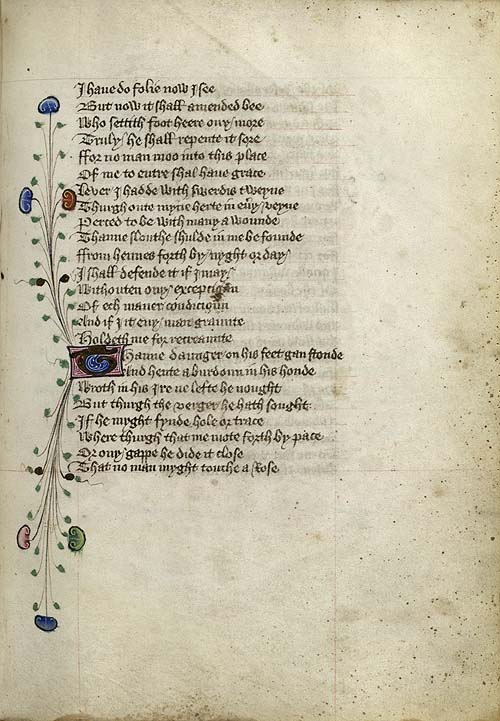 I haue do folie now I see
But now it shall amended bee
Who settith foot heere ony more
Truly he shall repente it sore
ffor no man moo into this place
Of me to entre shal haue grace
Lever I hadde with swerdis tweyne
Thurgh oute myne herte in euery veyne
Perced to be with many a wounde
Thanne slouthe shulde in me be founde
ffrom hennes forth by nyght or day
I shall defende it if I may
Withouten ony excepcioun
Of ech maner condicioun
And if I it eny man graunte
Holdeth me for recreaunte
Thanne daunger on his feet gan stonde
And hente a burdoun in his honde
Wroth in his Ire ne lefte he nought
But thurgh the verger he hath sought
If he myght fynde hole or trace
Where thurgh that me mote forth by pace
Or ony gappe he dide it close
That no man myght touche a Rose